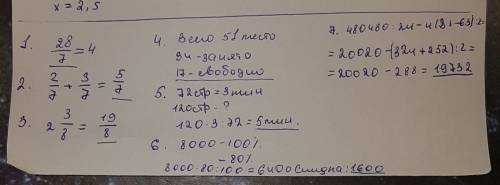 x = 2,5
1. 28/7 = 4
2. 2/7 + 3/7 = 5/7
3. 2 3/8 = 19/8
4. Всего 51 место
34 - занято
17 - свободно
5. 72стр = 3 мин
120стр - ?
120 · 3 : 72 = 5 мин.
6. 8000 - 100%
- 80%
8000 · 80 : 100 = 6400 Скидка: 1600
7. 480480 : 24 - 4(81-63) :2=
= 20020 - (324 + 252) : 2 =
= 20020 - 288 = 19732